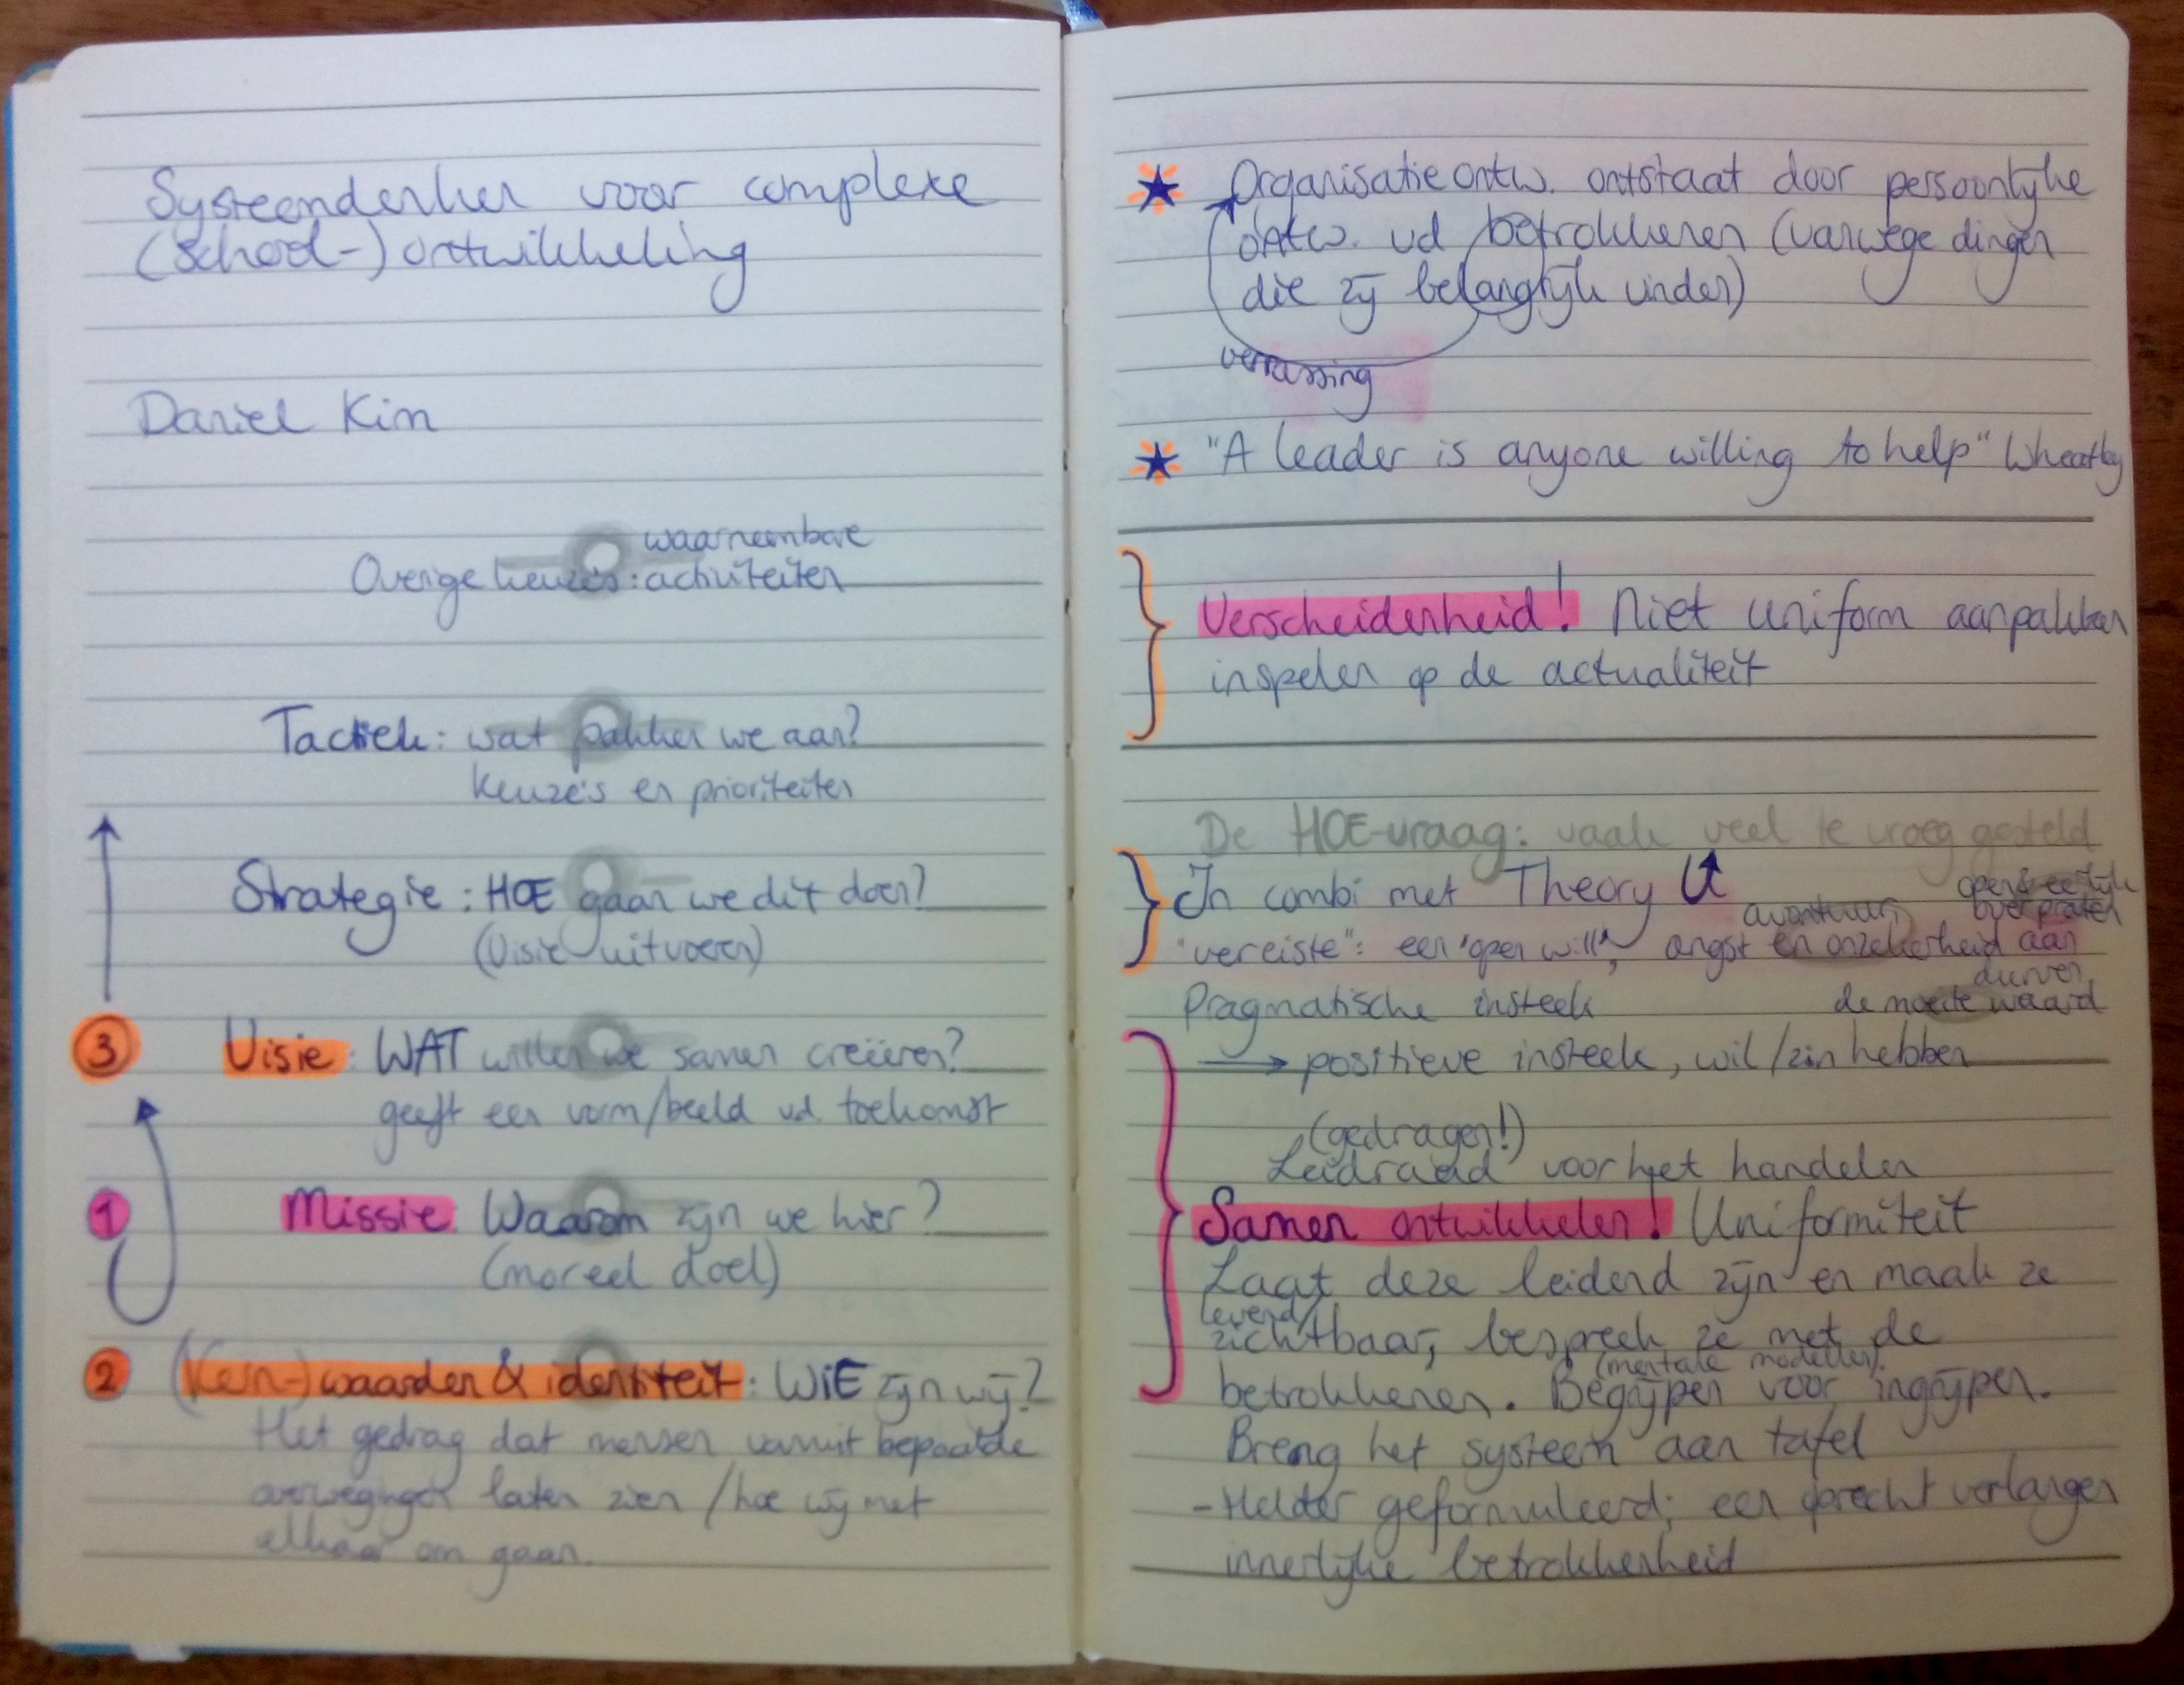 Systeemdenken voor complexe
(school-)ontwikkeling
Daniel Kim
waarneembare
Overige keuzes: activiteiten
Tactiek: wat pakken we aan?
keuzes en prioriteiten
Strategie: HOE gaan we dit doen?
(Visie uitvoeren)
3 Visie: WAT willen we samen creëren?
geeft een vorm/beeld vd. toekomst
1 Missie: Waarom zijn we hier?
(moreel doel)
2 (Kern-)waarden & identiteit: WIE zijn wij?
Het gedrag dat mensen vanuit bepaalde
overwegingen laten zien / hoe wij met
elkaar om gaan.
Organisatieontw. ontstaat door persoonlijke
ontw. vd betrokkenen (vanwege dingen
die zij belangrijk vinden)
verrassing
"A leader is anyone willing to help" Wheatley
Verscheidenheid! Niet uniform aanpakken
inspelen op de actualiteit
De HOE-vraag: vaak veel te vroeg gesteld
In combi met Theory U
open & eerlijk
avontuur, over praten
"vereiste": een 'open will', angst en onzekerheid aan
durven
Pragmatische insteek de moeite waard
→ positieve insteek, wil/zin hebben
(gedragen!)
Leidraad voor het handelen
Samen ontwikkelen! Uniformiteit
Laat deze leidend zijn en maak ze
levend/
zichtbaar, bespreek ze met de
(mentale modellen).
betrokkenen. Begrijpen voor ingrijpen.
Breng het systeem aan tafel
- Helder geformuleerd; een oprecht verlangen
innerlijke betrokkenheid